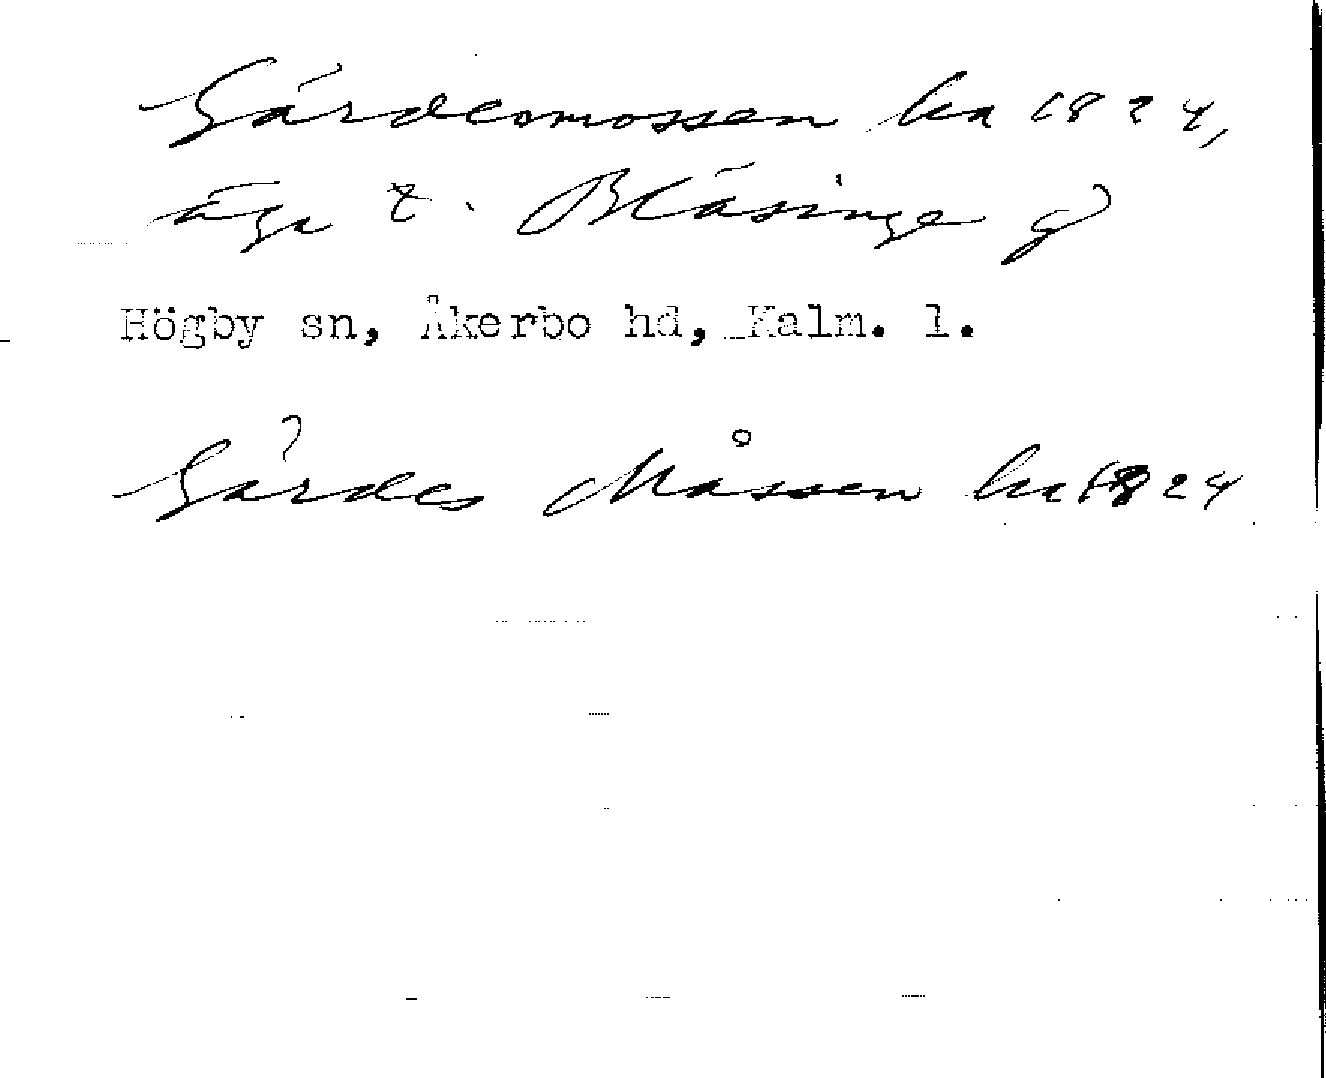 Gärdesmossen ha 1824,
äga t. Bläsinge g
Högby sn, Åkerbo hd, Kalm. l.
Gärdes Måssen ha 1824